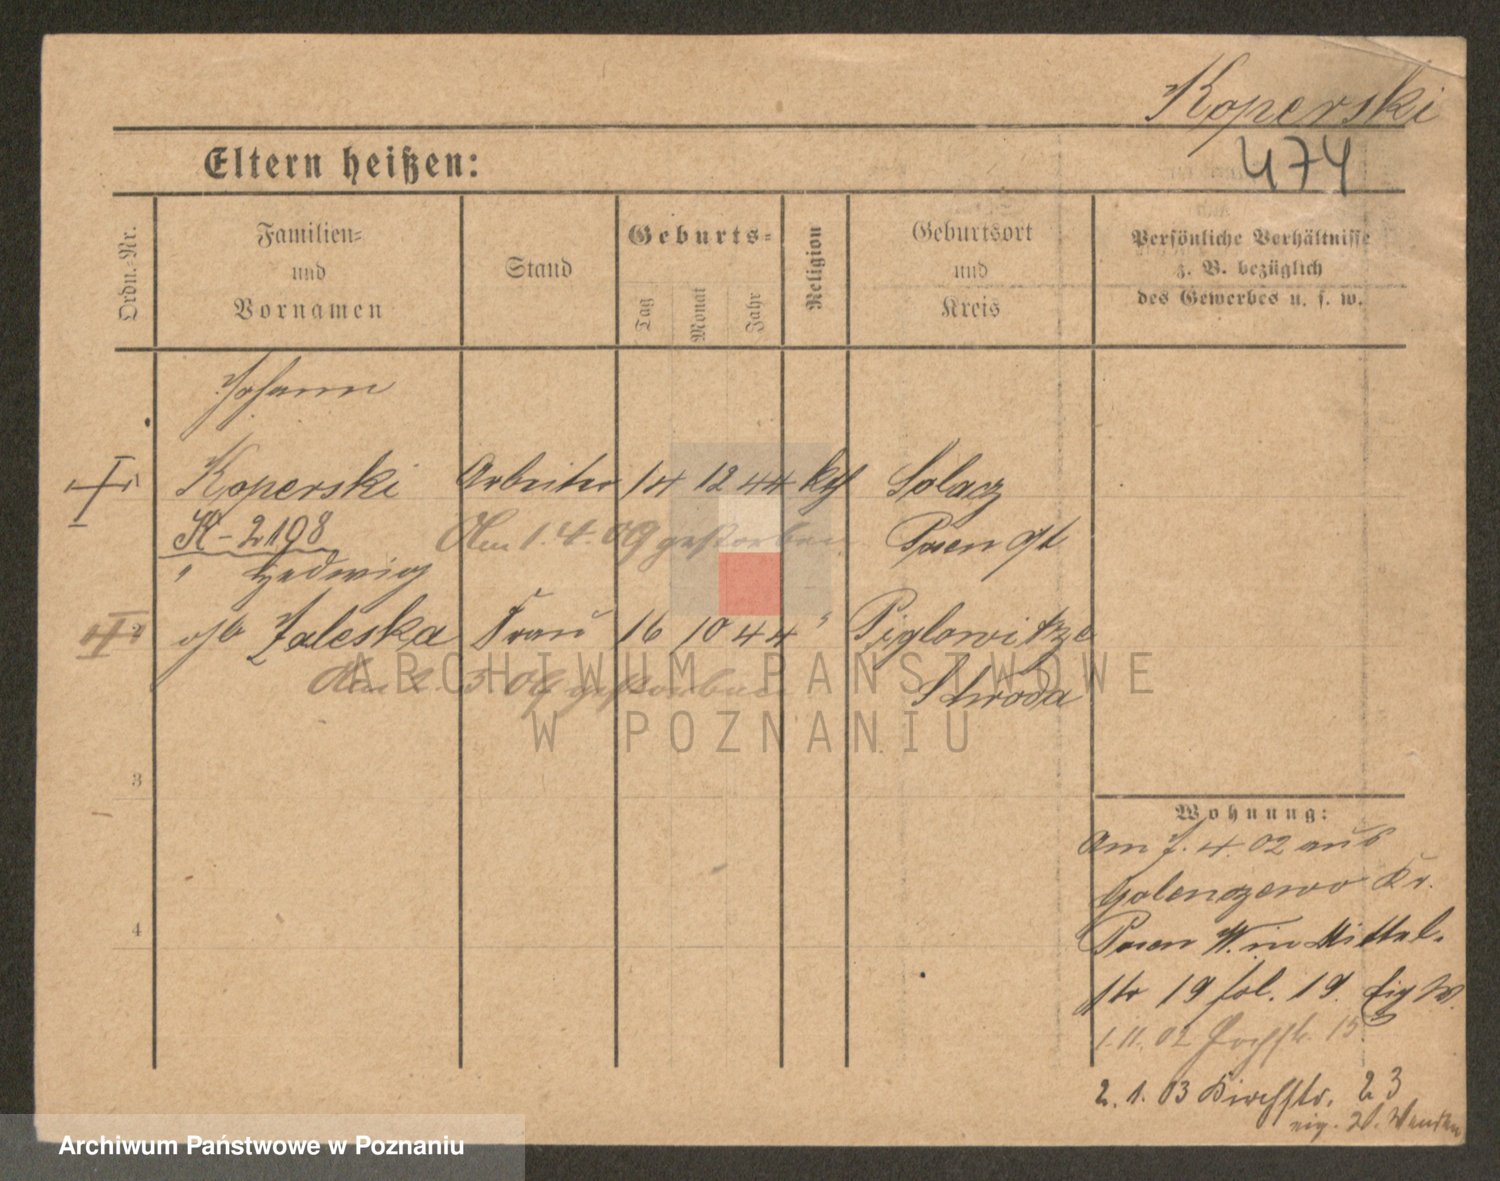 Koperski
474
Eltern heißen:
Ordn.-Nr.
Familien-
und
Vornamen
Stand
Geburts-
Tag
Monat
Jahr
Religion
Geburtsort
und
Kreis
Persönliche Verhältnisse
z. B. bezüglich
des Gewerbes u. s. w.
Johann
Koperski Arbeiter 14 12 44 kth Solacz
K-2198 Am 1.4.09 gestorben Posen
" Hedwig
2 geb Zaleska Frau 16 10 44 " Piglowitze
Am 2. 3 09 gestorben Schroda
ARCHIWUM PAŃSTWOWE
W POZNANIU
3
Wohnung:
Am 7. 4. 02 aus
Golenczewo Kr.
4
Posen W. in Mittel-
str 19 fol. 19. Eig W.
1.11.02 15.
2. 1. 03 Kirchstr. 23
eig. W.
Archiwum Państwowe w Poznaniu